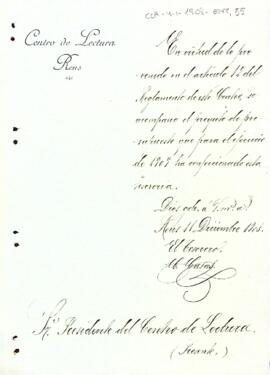 Centro de Lectura
Reus
En virtud de lo pre
venido en el artículo 18 del
Reglamento de este Centro,
acompaño el proyecto de pre
supuesto que para el ejercicio
de 1909 ha confeccionado esta
Tesorería.
Dios gde. a V. m. a.
Reus 11 Diciembre 1908.
El Tesorero
Sr. Presidente del Centro de Lectura.
(Presente.)